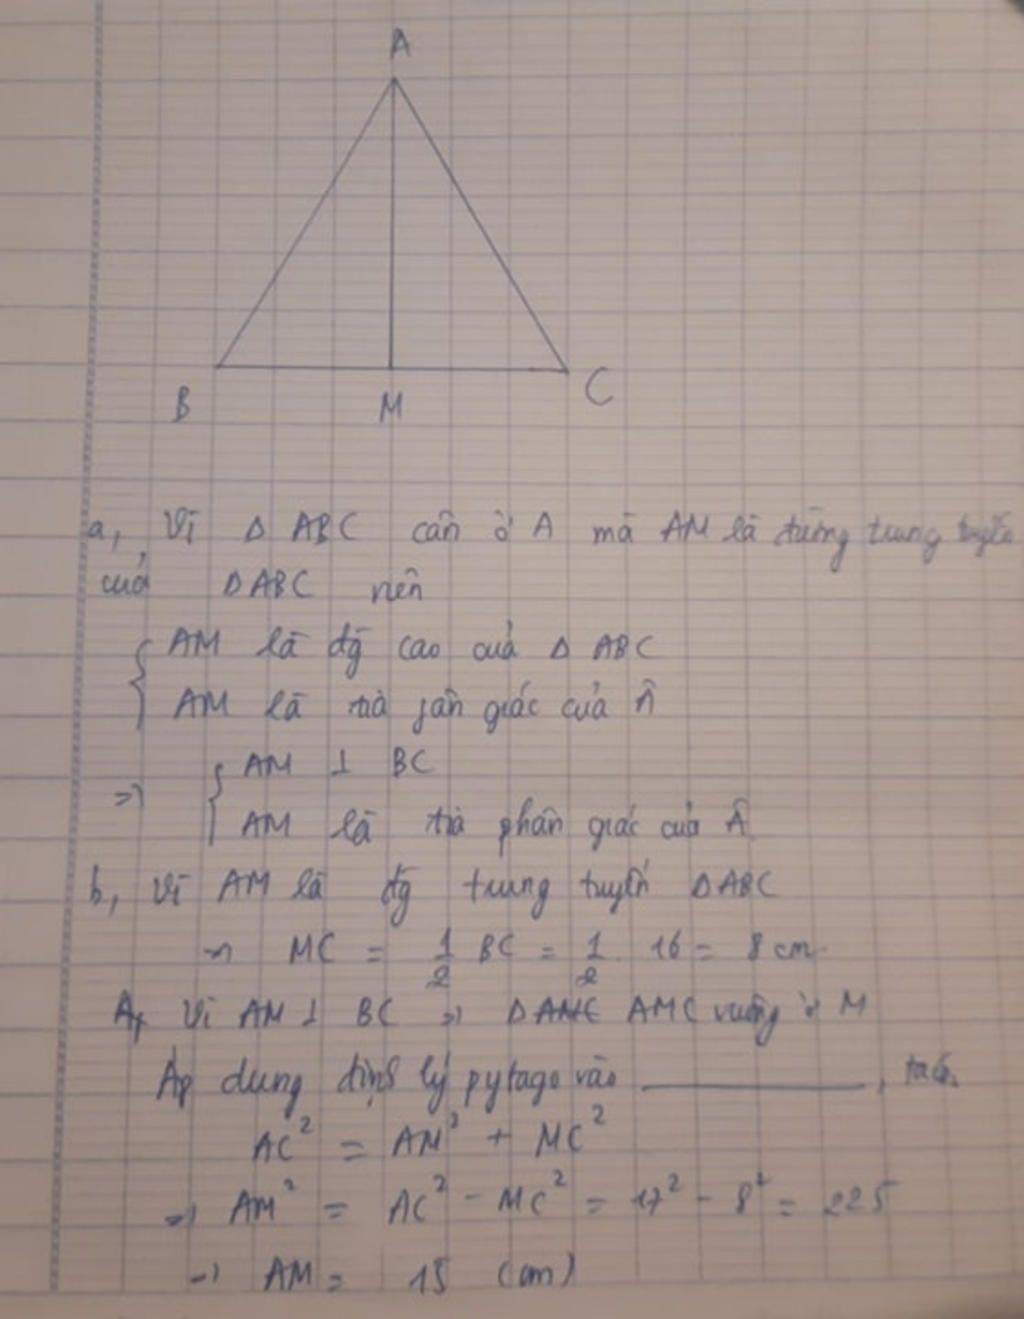 A
B
M
C
a, Vì Δ ABC cân ở A mà AM là đường trung tuyến
của ΔABC nên
AM là đg cao của Δ ABC
AM là tia fân giác của Â
=> AM ⊥ BC
AM là tia phân giác của Â
b, Vì AM là đg trung tuyến ΔABC
=> MC = 1/2 BC = 1/2 . 16 = 8 cm
Vì AM ⊥ BC => Δ AMC vuông ở M
Áp dụng định lý pytago vào ———, ta có
AC² = AM² + MC²
=> AM² = AC² - MC² = 17² - 8² = 225
=> AM = 15 (cm)